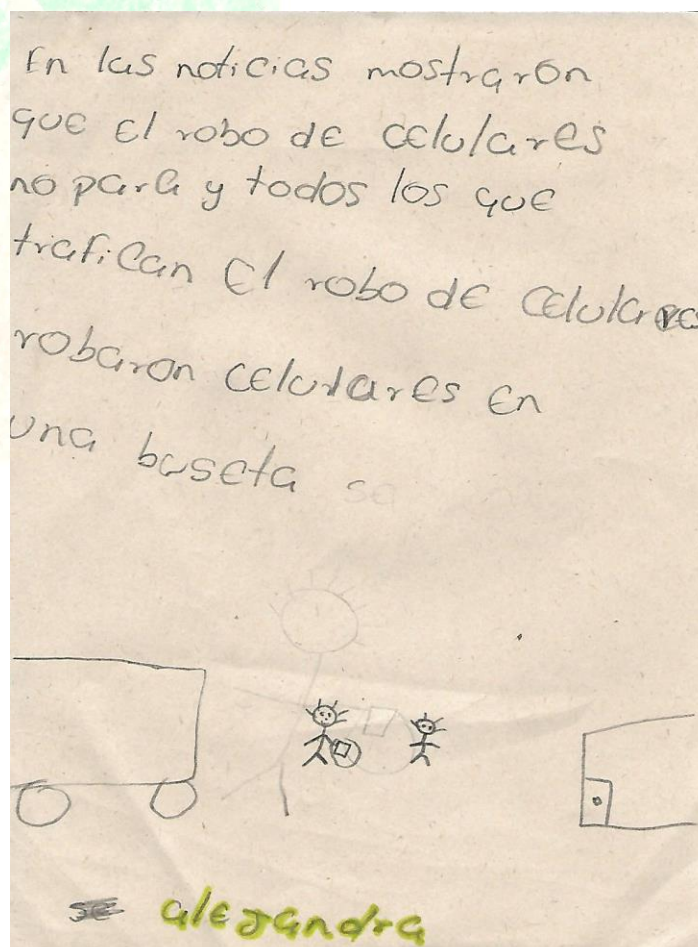 En las noticias mostraron
que el robo de celulares
no para y todos los que
trafican el robo de celulares
robaron celulares en
una buseta se
se alejandra